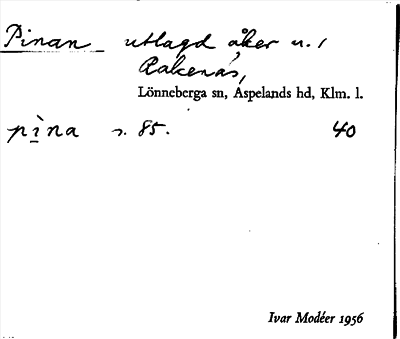 Pinan utlagd åker u. /
Rakenäs,
Lönneberga sn, Aspelands hd, Klm. l.
pi̠̍na s. 85. 40
Ivar Modéer 1956